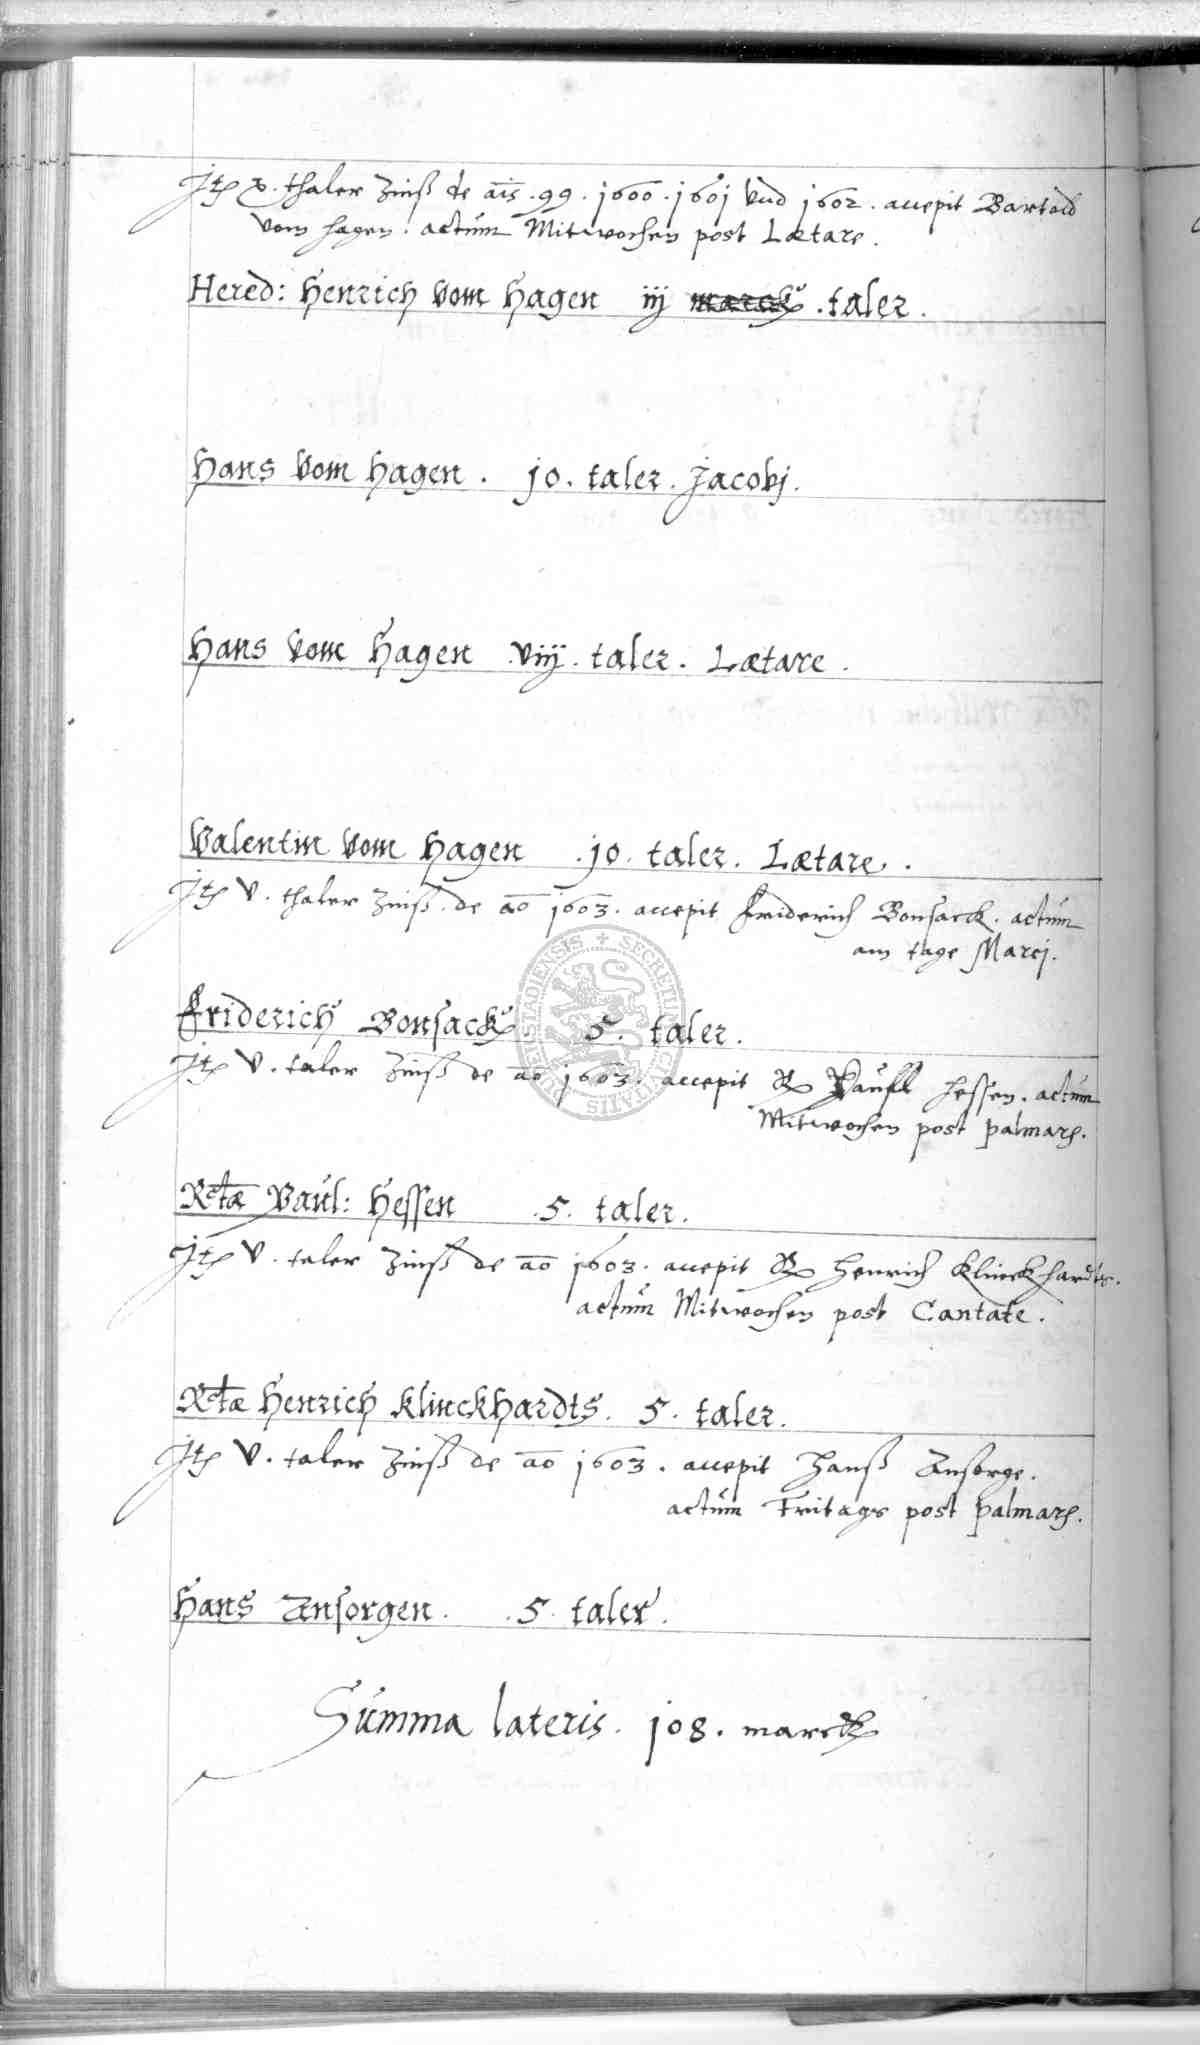 Jt x. thaler Zinß de ais .99. j600. j60j vnd j602. accepit Bartold
vom Hagen. actum Mitwochen post Lætare.
Hered: Henrich vom Hagen iij marck .taler.
Hans vom Hagen. jo. taler. Jacobj.
Hans vom Hagen viij. taler. Lætare.
Valentin vom Hagen .jo. taler. Lætare.
Jt v. thaler Zinß. de ao j603. accepit Friderich Bonsack. actum
am tage Marcj.
SECRETUM CIVITATIS DUDERSTADIENSIS
Friderich Bonsack 5. taler.
Jt v. taler Zinß de ao j603. accepit R Paull Hessen. actum
Mitwochen post palmar.
Rctæ Paul: Hessen .5. taler.
Jt v. taler Zinß de ao j603. accepit R Henrich Klinckhardts.
actum Mitwochen post Cantate.
Rctæ Henrich Klinckhardts. 5. taler.
Jt v. taler Zinß de ao j603. accepit Hanß Ansorge.
actum Fritags post palmar.
Hans Ansorgen. .5. taler.
Summa lateris. jo8. marck